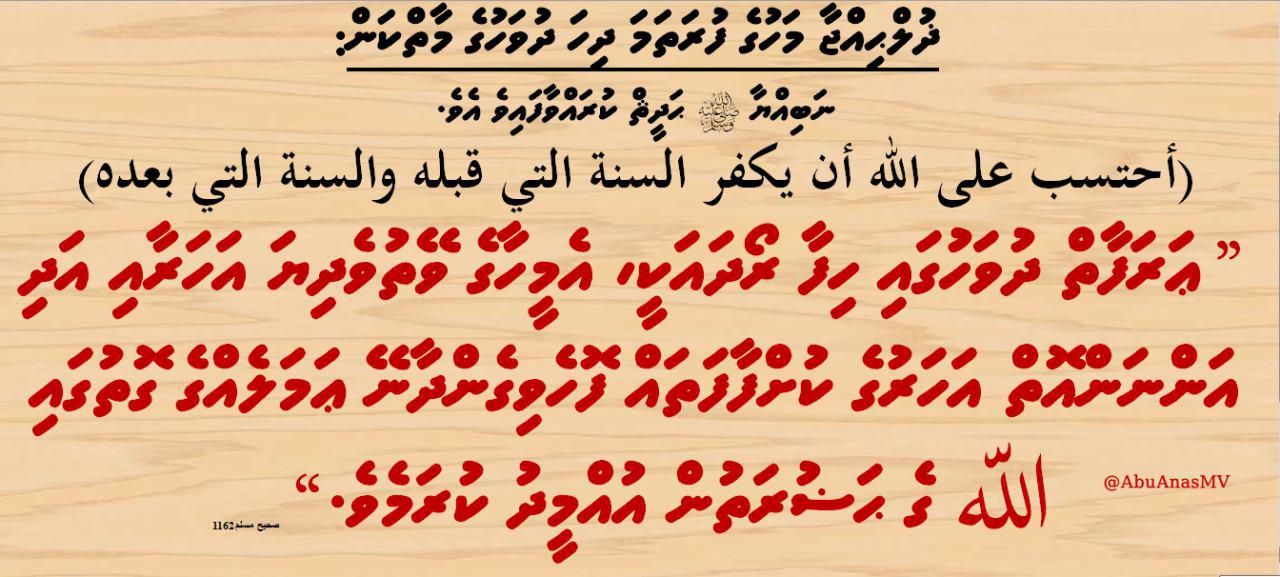 ޛުލްޙިއްޖާ މަހުގެ ފުރަތަމަ ދިހަ ދުވަހުގެ މާތްކަން:
ނަބިއްޔާ ﷺ ޙަދީޘް ކުރައްވާފައިވެ އެވެ.
(أحتسب على الله أن يكفر السنة التي قبله والسنة التي بعده)
” ޢަރަފާތް ދުވަހުގައި ހިފާ ރޯދައަކީ، އެމީހާގެ ވޭތުވެދިޔަ އަހަރާއި އަދި
އަންނަންއޮތް އަހަރުގެ ކުށްފާފަތައް ފޮހެވިގެންދާނޭ ޢަމަލެއްގެ ގޮތުގައި
اللّٰه ގެ ޙަޟުރަތުން އުއްމީދު ކުރަމެވެ.“
@AbuAnasMV
صحيح مسلم 1162